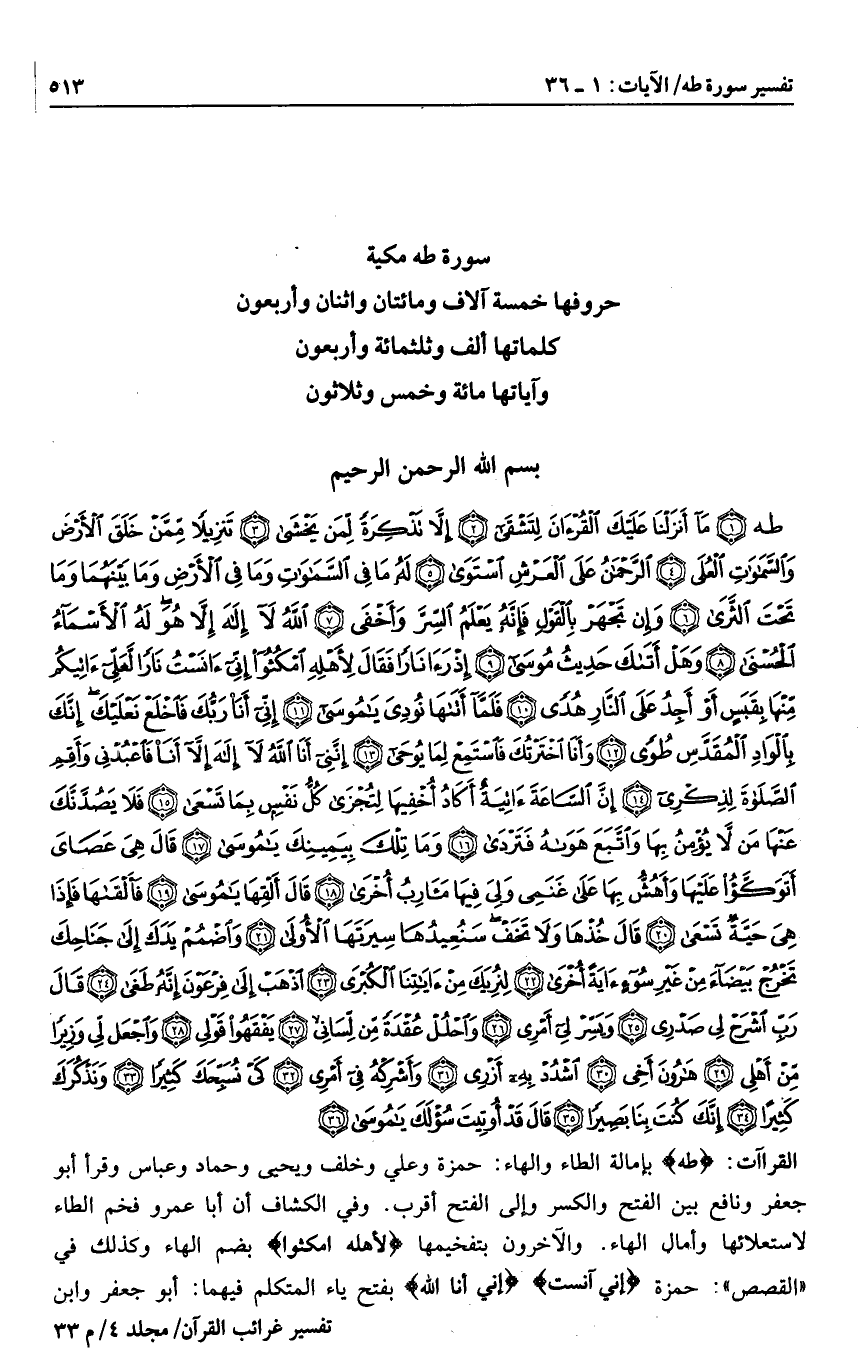 تفسير سورة طه/ الآيات: ١ - ٣٦
٥١٣
سورة طه مكية
حروفها خمسة آلاف ومائتان واثنان وأربعون
كلماتها ألف وثلثمائة وأربعون
وآياتها مائة وخمس وثلاثون
بسم الله الرحمن الرحيم
طه ﴿١﴾ مَآ أَنزَلْنَا عَلَيْكَ ٱلْقُرْءَانَ لِتَشْقَىٰٓ ﴿٢﴾ إِلَّا تَذْكِرَةً لِّمَن يَخْشَىٰ ﴿٣﴾ تَنزِيلًا مِّمَّنْ خَلَقَ ٱلْأَرْضَ
وَٱلسَّمَٰوَٰتِ ٱلْعُلَى ﴿٤﴾ ٱلرَّحْمَٰنُ عَلَى ٱلْعَرْشِ ٱسْتَوَىٰ ﴿٥﴾ لَهُۥ مَا فِى ٱلسَّمَٰوَٰتِ وَمَا فِى ٱلْأَرْضِ وَمَا بَيْنَهُمَا وَمَا
تَحْتَ ٱلثَّرَىٰ ﴿٦﴾ وَإِن تَجْهَرْ بِٱلْقَوْلِ فَإِنَّهُۥ يَعْلَمُ ٱلسِّرَّ وَأَخْفَى ﴿٧﴾ ٱللَّهُ لَآ إِلَٰهَ إِلَّا هُوَۖ لَهُ ٱلْأَسْمَآءُ
ٱلْحُسْنَىٰ ﴿٨﴾ وَهَلْ أَتَىٰكَ حَدِيثُ مُوسَىٰٓ ﴿٩﴾ إِذْ رَءَا نَارًا فَقَالَ لِأَهْلِهِ ٱمْكُثُوٓا۟ إِنِّىٓ ءَانَسْتُ نَارًا لَّعَلِّىٓ ءَاتِيكُم
مِّنْهَا بِقَبَسٍ أَوْ أَجِدُ عَلَى ٱلنَّارِ هُدًى ﴿١٠﴾ فَلَمَّآ أَتَىٰهَا نُودِىَ يَٰمُوسَىٰٓ ﴿١١﴾ إِنِّىٓ أَنَا۠ رَبُّكَ فَٱخْلَعْ نَعْلَيْكَۖ إِنَّكَ
بِٱلْوَادِ ٱلْمُقَدَّسِ طُوًى ﴿١٢﴾ وَأَنَا ٱخْتَرْتُكَ فَٱسْتَمِعْ لِمَا يُوحَىٰٓ ﴿١٣﴾ إِنَّنِىٓ أَنَا ٱللَّهُ لَآ إِلَٰهَ إِلَّآ أَنَا۠ فَٱعْبُدْنِى وَأَقِمِ
ٱلصَّلَوٰةَ لِذِكْرِىٓ ﴿١٤﴾ إِنَّ ٱلسَّاعَةَ ءَاتِيَةٌ أَكَادُ أُخْفِيهَا لِتُجْزَىٰ كُلُّ نَفْسٍۭ بِمَا تَسْعَىٰ ﴿١٥﴾ فَلَا يَصُدَّنَّكَ
عَنْهَا مَن لَّا يُؤْمِنُ بِهَا وَٱتَّبَعَ هَوَىٰهُ فَتَرْدَىٰ ﴿١٦﴾ وَمَا تِلْكَ بِيَمِينِكَ يَٰمُوسَىٰ ﴿١٧﴾ قَالَ هِىَ عَصَاىَ
أَتَوَكَّؤُا۟ عَلَيْهَا وَأَهُشُّ بِهَا عَلَىٰ غَنَمِى وَلِىَ فِيهَا مَـَٔارِبُ أُخْرَىٰ ﴿١٨﴾ قَالَ أَلْقِهَا يَٰمُوسَىٰ ﴿١٩﴾ فَأَلْقَىٰهَا فَإِذَا
هِىَ حَيَّةٌ تَسْعَىٰ ﴿٢٠﴾ قَالَ خُذْهَا وَلَا تَخَفْۖ سَنُعِيدُهَا سِيرَتَهَا ٱلْأُولَىٰ ﴿٢١﴾ وَٱضْمُمْ يَدَكَ إِلَىٰ جَنَاحِكَ
تَخْرُجْ بَيْضَآءَ مِنْ غَيْرِ سُوٓءٍ ءَايَةً أُخْرَىٰ ﴿٢٢﴾ لِنُرِيَكَ مِنْ ءَايَٰتِنَا ٱلْكُبْرَى ﴿٢٣﴾ ٱذْهَبْ إِلَىٰ فِرْعَوْنَ إِنَّهُۥ طَغَىٰ ﴿٢٤﴾ قَالَ
رَبِّ ٱشْرَحْ لِى صَدْرِى ﴿٢٥﴾ وَيَسِّرْ لِىٓ أَمْرِى ﴿٢٦﴾ وَٱحْلُلْ عُقْدَةً مِّن لِّسَانِى ﴿٢٧﴾ يَفْقَهُوا۟ قَوْلِى ﴿٢٨﴾ وَٱجْعَل لِّى وَزِيرًا
مِّنْ أَهْلِى ﴿٢٩﴾ هَٰرُونَ أَخِى ﴿٣٠﴾ ٱشْدُدْ بِهِۦٓ أَزْرِى ﴿٣١﴾ وَأَشْرِكْهُ فِىٓ أَمْرِى ﴿٣٢﴾ كَىْ نُسَبِّحَكَ كَثِيرًا ﴿٣٣﴾ وَنَذْكُرَكَ
كَثِيرًا ﴿٣٤﴾ إِنَّكَ كُنتَ بِنَا بَصِيرًا ﴿٣٥﴾ قَالَ قَدْ أُوتِيتَ سُؤْلَكَ يَٰمُوسَىٰ ﴿٣٦﴾
القراآت: ﴿طه﴾ بإمالة الطاء والهاء: حمزة وعلي وخلف ويحيى وحماد وعباس وقرأ أبو
جعفر ونافع بين الفتح والكسر وإلى الفتح أقرب. وفي الكشاف أن أبا عمرو فخم الطاء
لاستعلائها وأمال الهاء. والآخرون بتفخيمها ﴿لأهله امكثوا﴾ بضم الهاء وكذلك في
«القصص»: حمزة ﴿إني آنست﴾ ﴿إني أنا الله﴾ بفتح ياء المتكلم فيهما: أبو جعفر وابن
تفسير غرائب القرآن/ مجلد ٤/ م ٣٣